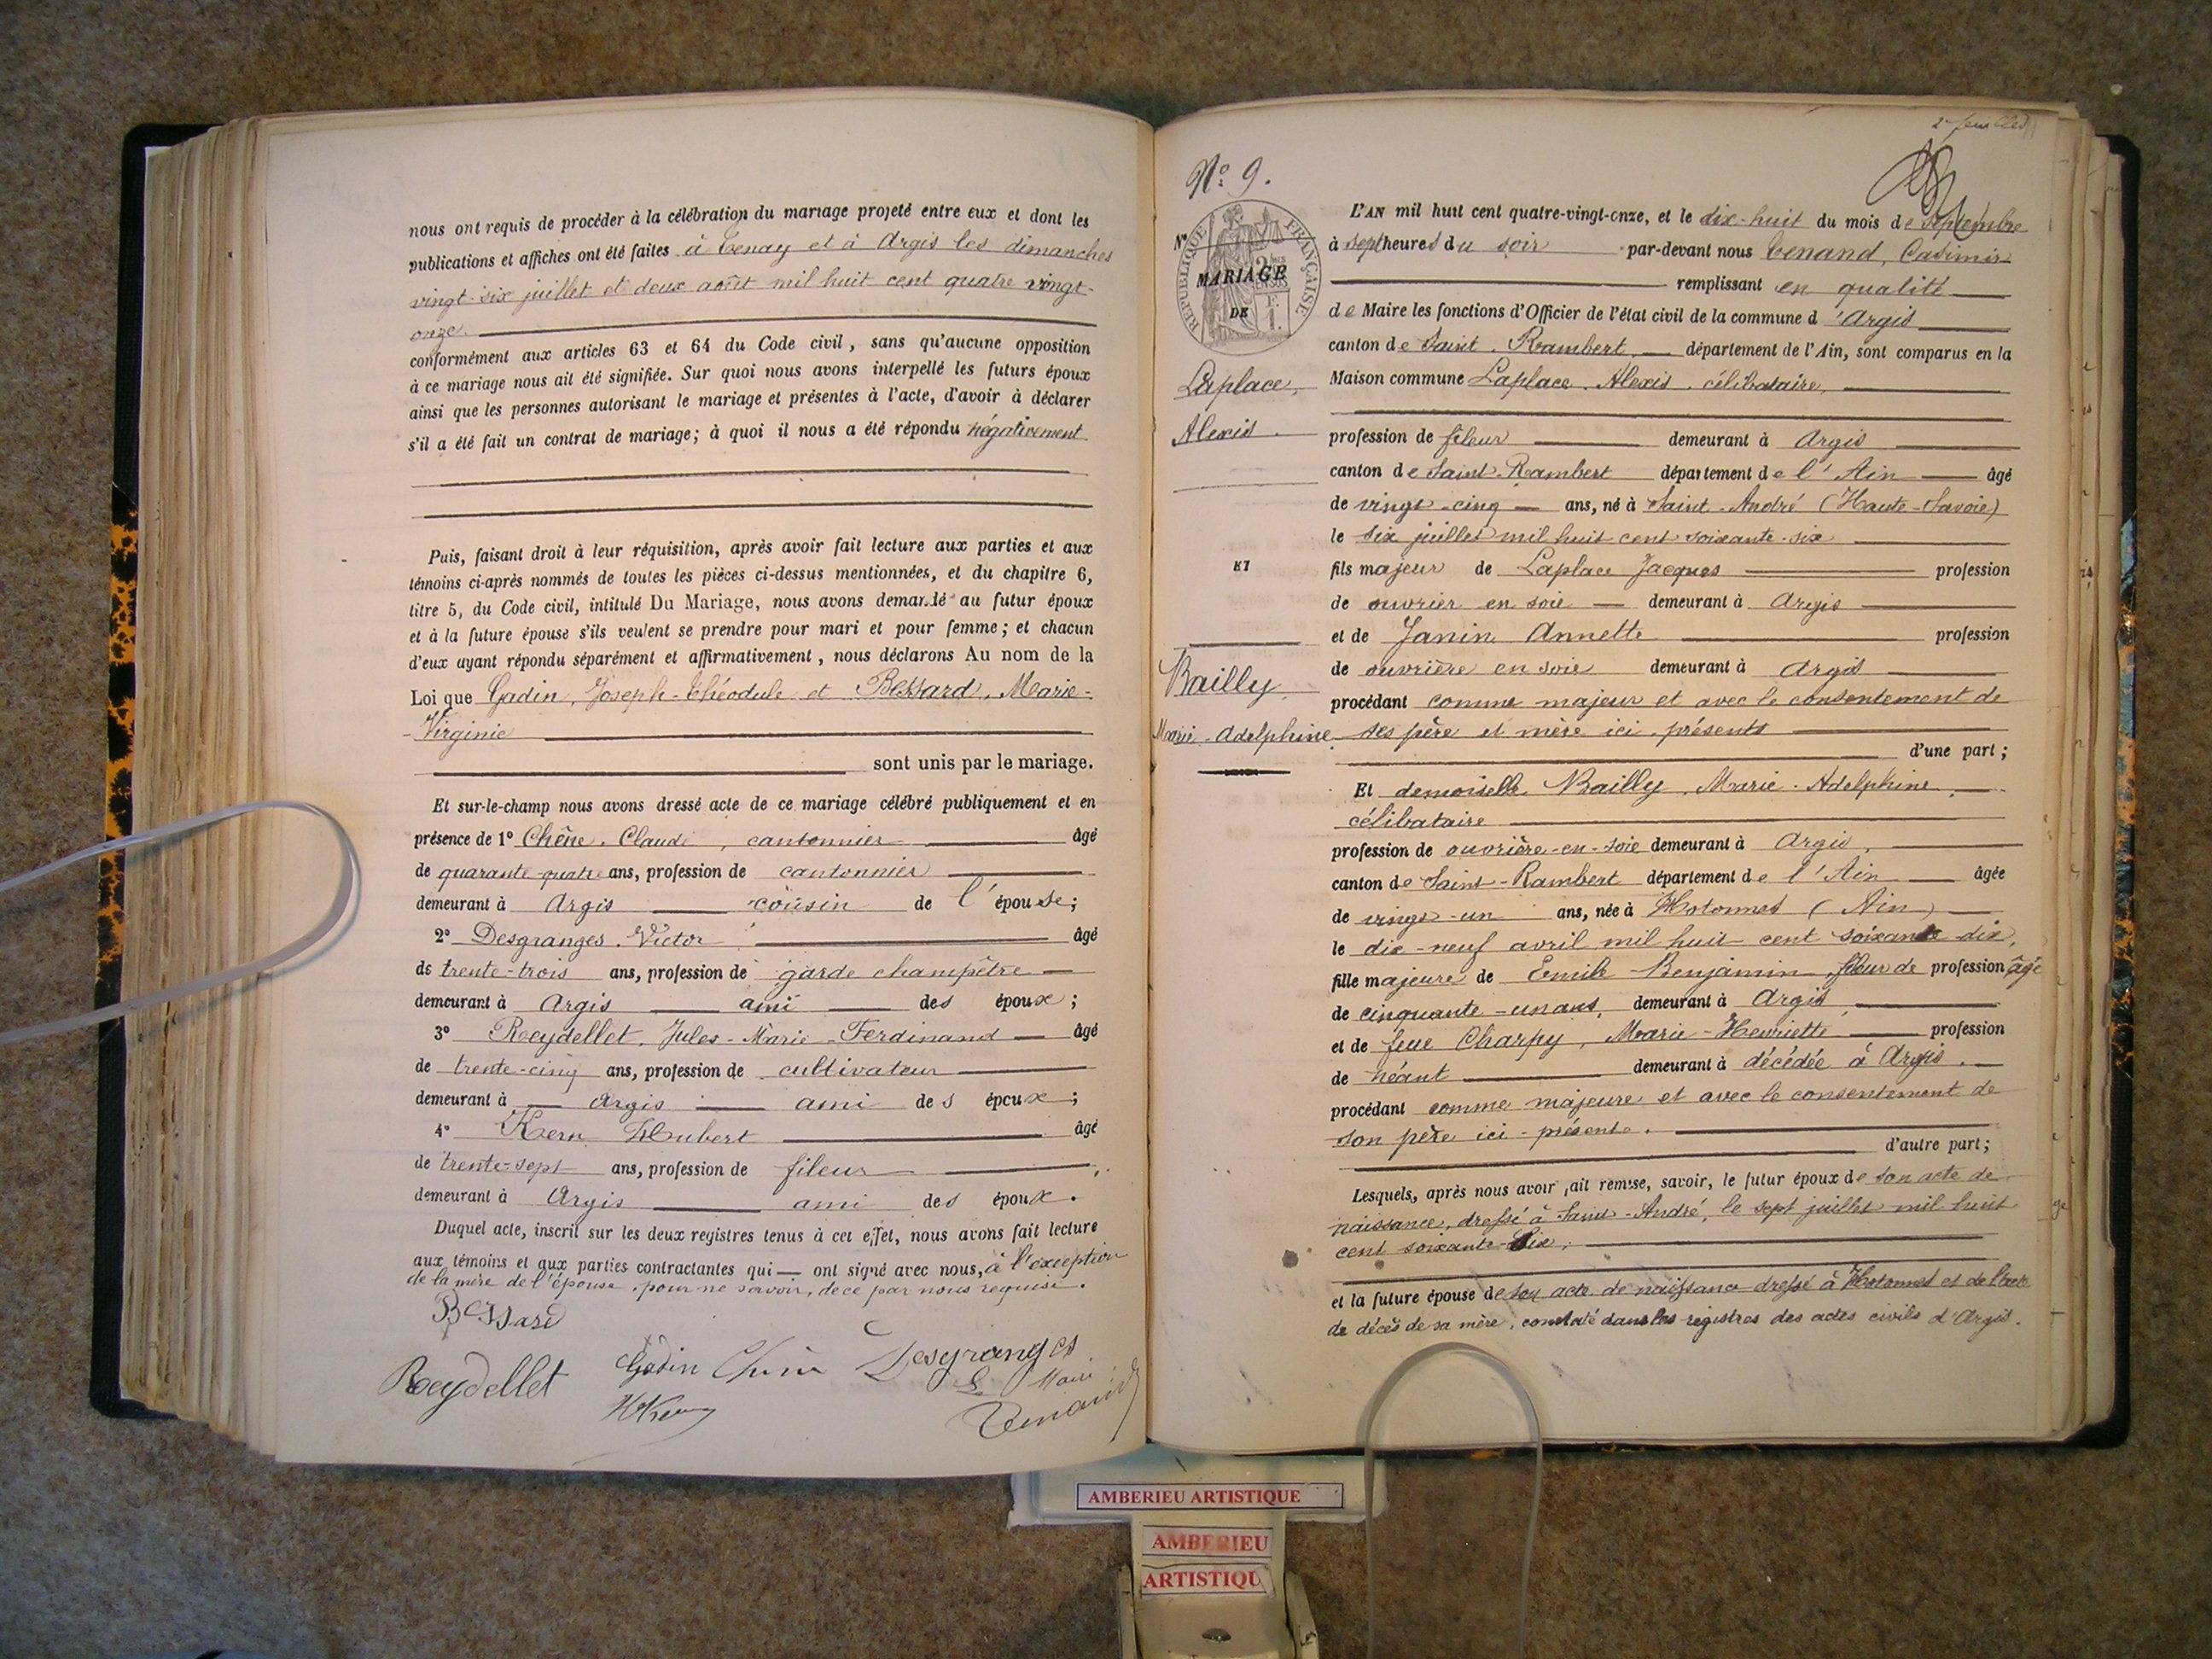 nous ont requis de procéder à la célébration du mariage projeté entre eux et dont les
publications et affiches ont été faites à Tenay et à Argis les dimanches
vingt-six juillet et deux août mil huit cent quatre vingt-
onze.
conformément aux articles 63 et 64 du Code civil, sans qu'aucune opposition
à ce mariage nous ait été signifiée. Sur quoi nous avons interpellé les futurs époux
ainsi que les personnes autorisant le mariage et présentes à l'acte, d'avoir à déclarer
s'il a été fait un contrat de mariage; à quoi il nous a été répondu négativement
Puis, faisant droit à leur réquisition, après avoir fait lecture aux parties et aux
témoins ci-après nommés de toutes les pièces ci-dessus mentionnées, et du chapitre 6,
titre 5, du Code civil, intitulé Du Mariage, nous avons demandé au futur époux
et à la future épouse s'ils veulent se prendre pour mari et pour femme; et chacun
d'eux ayant répondu séparément et affirmativement, nous déclarons Au nom de la
Loi que Gadin, Joseph-Théodule et Bessard, Marie-
-Virginie
sont unis par le mariage.
Et sur-le-champ nous avons dressé acte de ce mariage célébré publiquement et en
présence de 1° Chêne, Claude, cantonnier âgé
de quarante-quatre ans, profession de cantonnier
demeurant à Argis cousin de l'épouse;
2° Desgranges, Victor âgé
de trente-trois ans, profession de garde champêtre
demeurant à Argis ami des époux;
3° Reydellet, Jules-Marie-Ferdinand âgé
de trente-cinq ans, profession de cultivateur
demeurant à Argis ami des époux;
4° Kern Hubert âgé
de trente-sept ans, profession de fileur
demeurant à Argis ami des époux.
Duquel acte, inscrit sur les deux registres tenus à cet effet, nous avons fait lecture
aux témoins et aux parties contractantes qui — ont signé avec nous, à l'exception
de la mère de l'épouse, pour ne savoir, de ce par nous requise.
Bessard
Reydellet Gadin Chêne Desgranges
HKern Le Maire
Tenand
N° 9.
N°
RÉPUBLIQUE FRANÇAISE
MARIAGE
DE
Laplace,
Alexis
ET
Bailly,
Marie-Adelphine
L'AN mil huit cent quatre-vingt-onze, et le dix-huit du mois de Septembre
à sept heures du soir par-devant nous Tenand, Casimir
remplissant en qualité
de Maire les fonctions d'Officier de l'état civil de la commune d'Argis
canton de Saint-Rambert, département de l'Ain, sont comparus en la
Maison commune Laplace, Alexis, célibataire,
profession de fileur demeurant à Argis
canton de Saint-Rambert département de l'Ain âgé
de vingt-cinq ans, né à Saint-André (Haute-Savoie)
le six juillet mil huit cent soixante-six
fils majeur de Laplace Jacques profession
de ouvrier en soie demeurant à Argis
et de Janin Annette profession
de ouvrière en soie demeurant à Argis
procédant comme majeur et avec le consentement de
ses père et mère ici présents
d'une part;
Et demoiselle Bailly, Marie-Adelphine,
célibataire
profession de ouvrière-en-soie demeurant à Argis,
canton de Saint-Rambert département de l'Ain âgée
de vingt-un ans, née à Hotonnes (Ain)
le dix-neuf avril mil huit cent soixante dix,
fille majeure de Emile-Benjamin, fileur de profession âgé
de cinquante-un ans, demeurant à Argis,
et de feue Charpy, Marie-Henriette profession
de néant demeurant à décédée à Argis.
procédant comme majeure et avec le consentement de
son père ici-présent.
d'autre part;
Lesquels, après nous avoir fait remise, savoir, le futur époux de son acte de
naissance, dressé à Saint-André, le sept juillet mil huit
cent soixante-six;
et la future épouse de son acte de naissance dressé à Hotonnes et de l'acte
de décès de sa mère, constaté dans les registres des actes civils d'Argis.
AMBERIEU ARTISTIQUE
AMBERIEU
ARTISTIQU